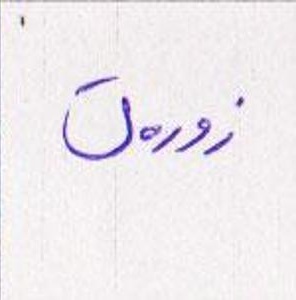 زورەق